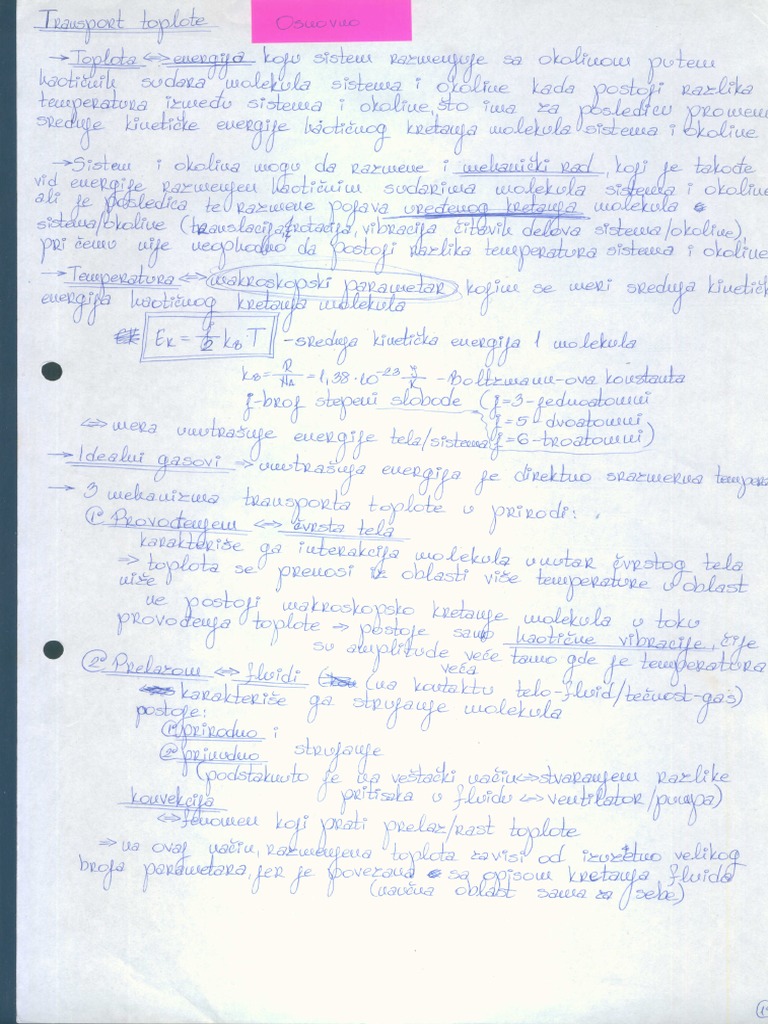 Transport toplote
Osnovno
→ Toplota ⇔ energija koju sistem razmenjuje sa okolinom putem
haotičnih sudara molekula sistema i okoline kada postoji razlika
temperatura između sistema i okoline, što ima za posledicu promenu
srednje kinetičke energije haotičnog kretanja molekula sistema i okoline
→ Sistem i okolina mogu da razmene i mehanički rad, koji je takođe
vid energije razmenjen haotičnim sudarima molekula sistema i okoline
ali je posledica te razmene pojava uređenog kretanja molekula
sistema/okoline (translacija, rotacija, vibracija čitavih delova sistema/okoline),
pri čemu nije neophodno da postoji razlika temperatura sistema i okoline
→ Temperatura ⇔ makroskopski parametar kojim se meri srednja kinetičk
energija haotičnog kretanja molekula
Ek = j/2 kB T - srednja kinetička energija 1 molekula
kB = R/NA = 1,38·10⁻²³ J/K - Boltzmann-ova konstanta
j - broj stepeni slobode (j=3 - jednoatomni
j=5 - dvoatomni
⇔ mera unutrašnje energije tela/sistema j=6 - troatomni)
→ Idealni gasovi ⇒ unutrašnja energija je direktno srazmerna tempera
→ 3 mehanizma transporta toplote u prirodi:
1° Provođenjem ⇔ čvrsta tela
karakteriše ga interakcija molekula unutar čvrstog tela
⇒ toplota se prenosi iz oblasti više temperature u oblast
niže
ne postoji makroskopsko kretanje molekula u toku
provođenja toplote ⇒ postoje samo haotične vibracije, čije
su amplitude veće tamo gde je temperatura
veća
2° Prelazom ⇔ fluidi (na kontaktu telo-fluid/tečnost-gas)
karakteriše ga strujanje molekula
postoje:
1° prirodno i
2° prinudno strujanje
(podstaknuto je na veštački način ⇔ stvaranjem razlike
pritisaka u fluidu ⇔ ventilator/pumpa)
konvekcija
⇔ fenomen koji prati prelaz/rast toplote
⇒ na ovaj način, razmenjena toplota zavisi od izuzetno velikog
broja parametara, jer je povezana sa opisom kretanja fluida
(naučna oblast sama za sebe)